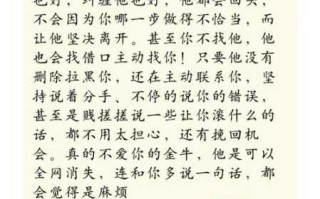 也好，纠缠他也好，他都会回头，
不会因为你哪一步做得不恰当，而
让他坚决离开。甚至你不找他，他
也会找借口主动找你！只要他没有
删除拉黑你，还在主动联系你，坚
持说着分手、不停的说你的错误，
甚至是贱搓搓说一些让你滚什么的
话，都不用太担心，还有挽回机
会。真的不爱你的金牛，他是可以
全网消失，连和你多说一句话，都
会觉得是麻烦